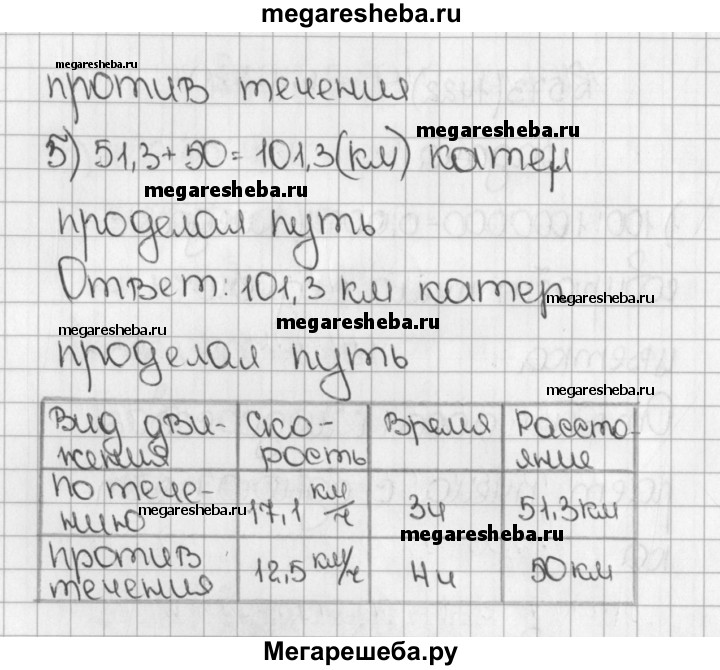 megaresheba.ru
megaresheba.ru
против течения
megaresheba.ru
5) 51,3+50=101,3(км) катер
megaresheba.ru
проделал путь
Ответ: 101,3 км катер
megaresheba.ru
megaresheba.ru
megaresheba.ru
проделал путь
megaresheba.ru
Вид дви- Ско- Время Рассто-
жения рость яние
по тече- 17,1 км/ч 3ч 51,3км
нию
megaresheba.ru
megaresheba.ru
против 12,5 км/ч 4ч 50км
течения
Мегарешеба.ру